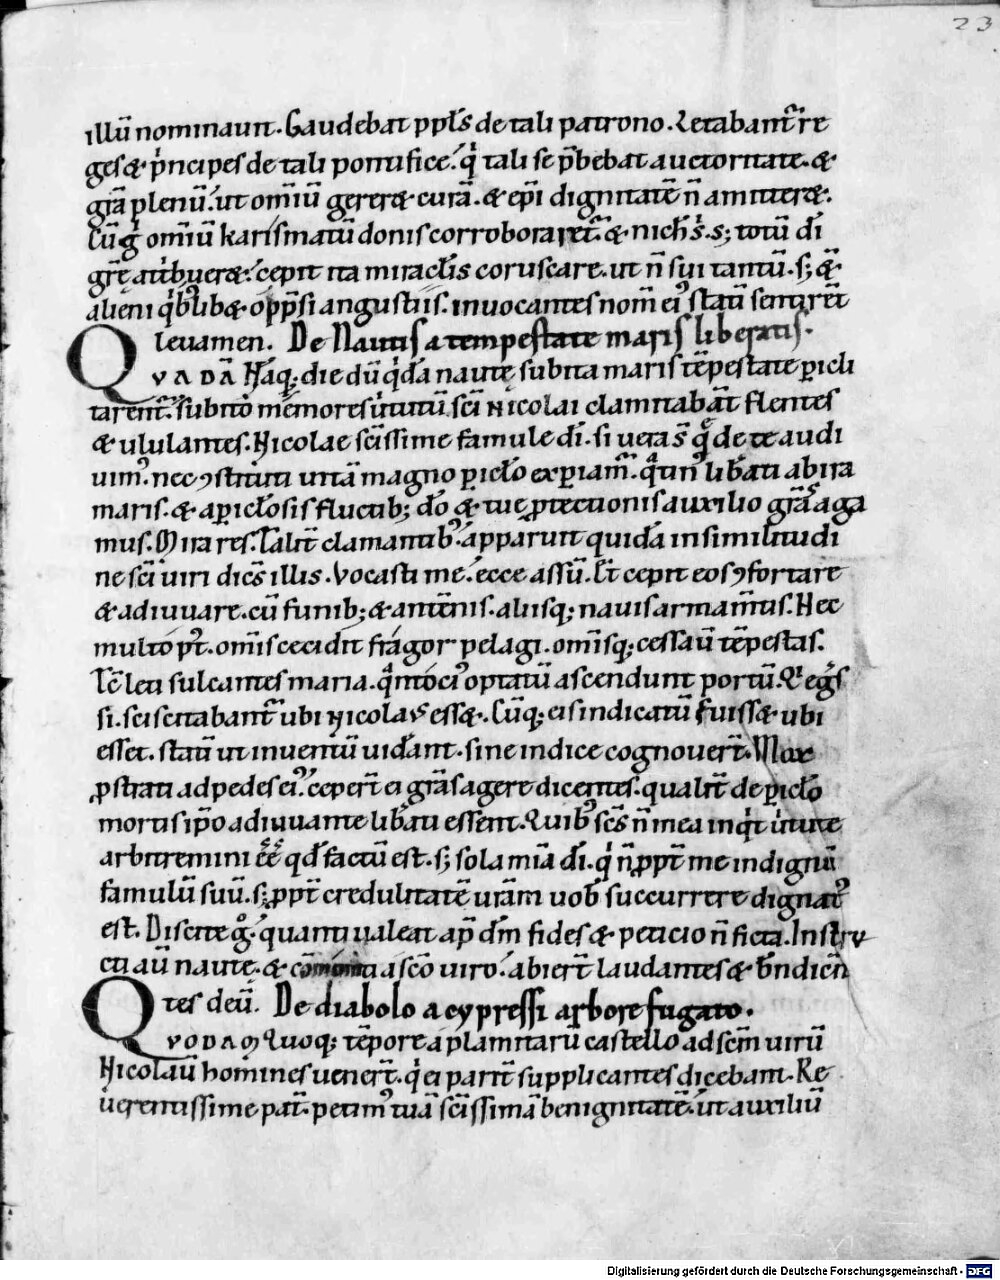 23
illū nominauit. Gaudebat ppl̄s de tali patrono. Letabant᷑ re
ges & pͥncipes de tali pontifice. qͥ tali se p̄bebat auctoritate. &
gr̄a plenū. ut om̄iū gereret curā. & ep̄i dignitatē n̄ amitteret.
Cū gͦ om̄iū karismatū donis corroboraret᷑. & nich̄ sͥ. s; totū dī
gr̄e attͥbueret. cepit ita miracl̄is coruscare. ut n̄ sui tantū. s; &
alieni qͥbuslibet opp̄si angustiis. inuocantes nom̄ eiꝰ statī sentirent
leuamen. De Nautis a tempestate maris liberatis.
QVADĀ Itaq; die dū qͥdā nautę subita maris tēpestate ꝑicli
tarent᷑. subito memores uͥtutū sc̄i Nicolai clamitabāt flentes
& ululantes. Nicolae sc̄issime famule dī. si uera s̄ quę de te audi
uimꝰ. nec ꝯstituti uitā magno ꝑicl̄o exꝑiam᷑. qͣtinꝰ lib̄ati ab ira
maris. & a ꝑicl̄osis fluctib; dō & tuę ꝓtectionis auxilio gr̄as aga
mus. Mira res. Talit̄ clamantibꝰ. apparuit quidā in similitudi
ne sc̄i uiri dicēs illis. Vocasti me. ecce assū. Et cepit eos ꝯfortare
& adiuuare. cū funib; & antēnis. aliisq; nauis armam̄tis. Nec
multo p̄t. om̄is cecidit fragor pelagi. om̄isq; cessauī tēpestas.
Tc̄ leti sulcantes maria. qͣntociꝰ optatū ascendunt portū. Et eg̃s
si. sciscitabant᷑ ubi Nicolaꝰ esset. Cūq; eis indicatū fuisset ubi
esset. statī ut inuentū uid̄ant. sine indice cognouer̄t. Mox
ꝓstrati ad pedes eiꝰ. ceper̄t ei gr̄as agere dicentes. qualit̄ de ꝑicl̄o
mortis ip̄o adiuuante lib̄ati essent. Quibꝰ sc̄s n̄ mea inqͥt uͥtute
arbitremini ēē qd̄ factū est. s; sola mīa dī. qͥ n̄ ꝓpt̄ me indignū
famulū suū. s; ꝓpt̄ credulitatē ur̄am uob̄ succurrere dignatꝰ
est. Discite gͦ. quanti ualeat ap̄ dm̄ fides & peticio n̄ ficta. Instru
cti aū nautę. & a sc̄o uiro. abier̄t laudantes & bn̄dicen
tes deū. De diabolo a cypressi arbore fugato.
QVODAM Quoq; tēpore a plamitarū castello ad scm̄ uirū
Nicolaū homines uener̄t. qͥ ei parit̄ supplicantes dicebant. Re
uerentissime pat̄. petimꝰ tuā sc̄issimā benignitatē. ut auxiliū
Digitalisierung gefördert durch die Deutsche Forschungsgemeinschaft - DFG